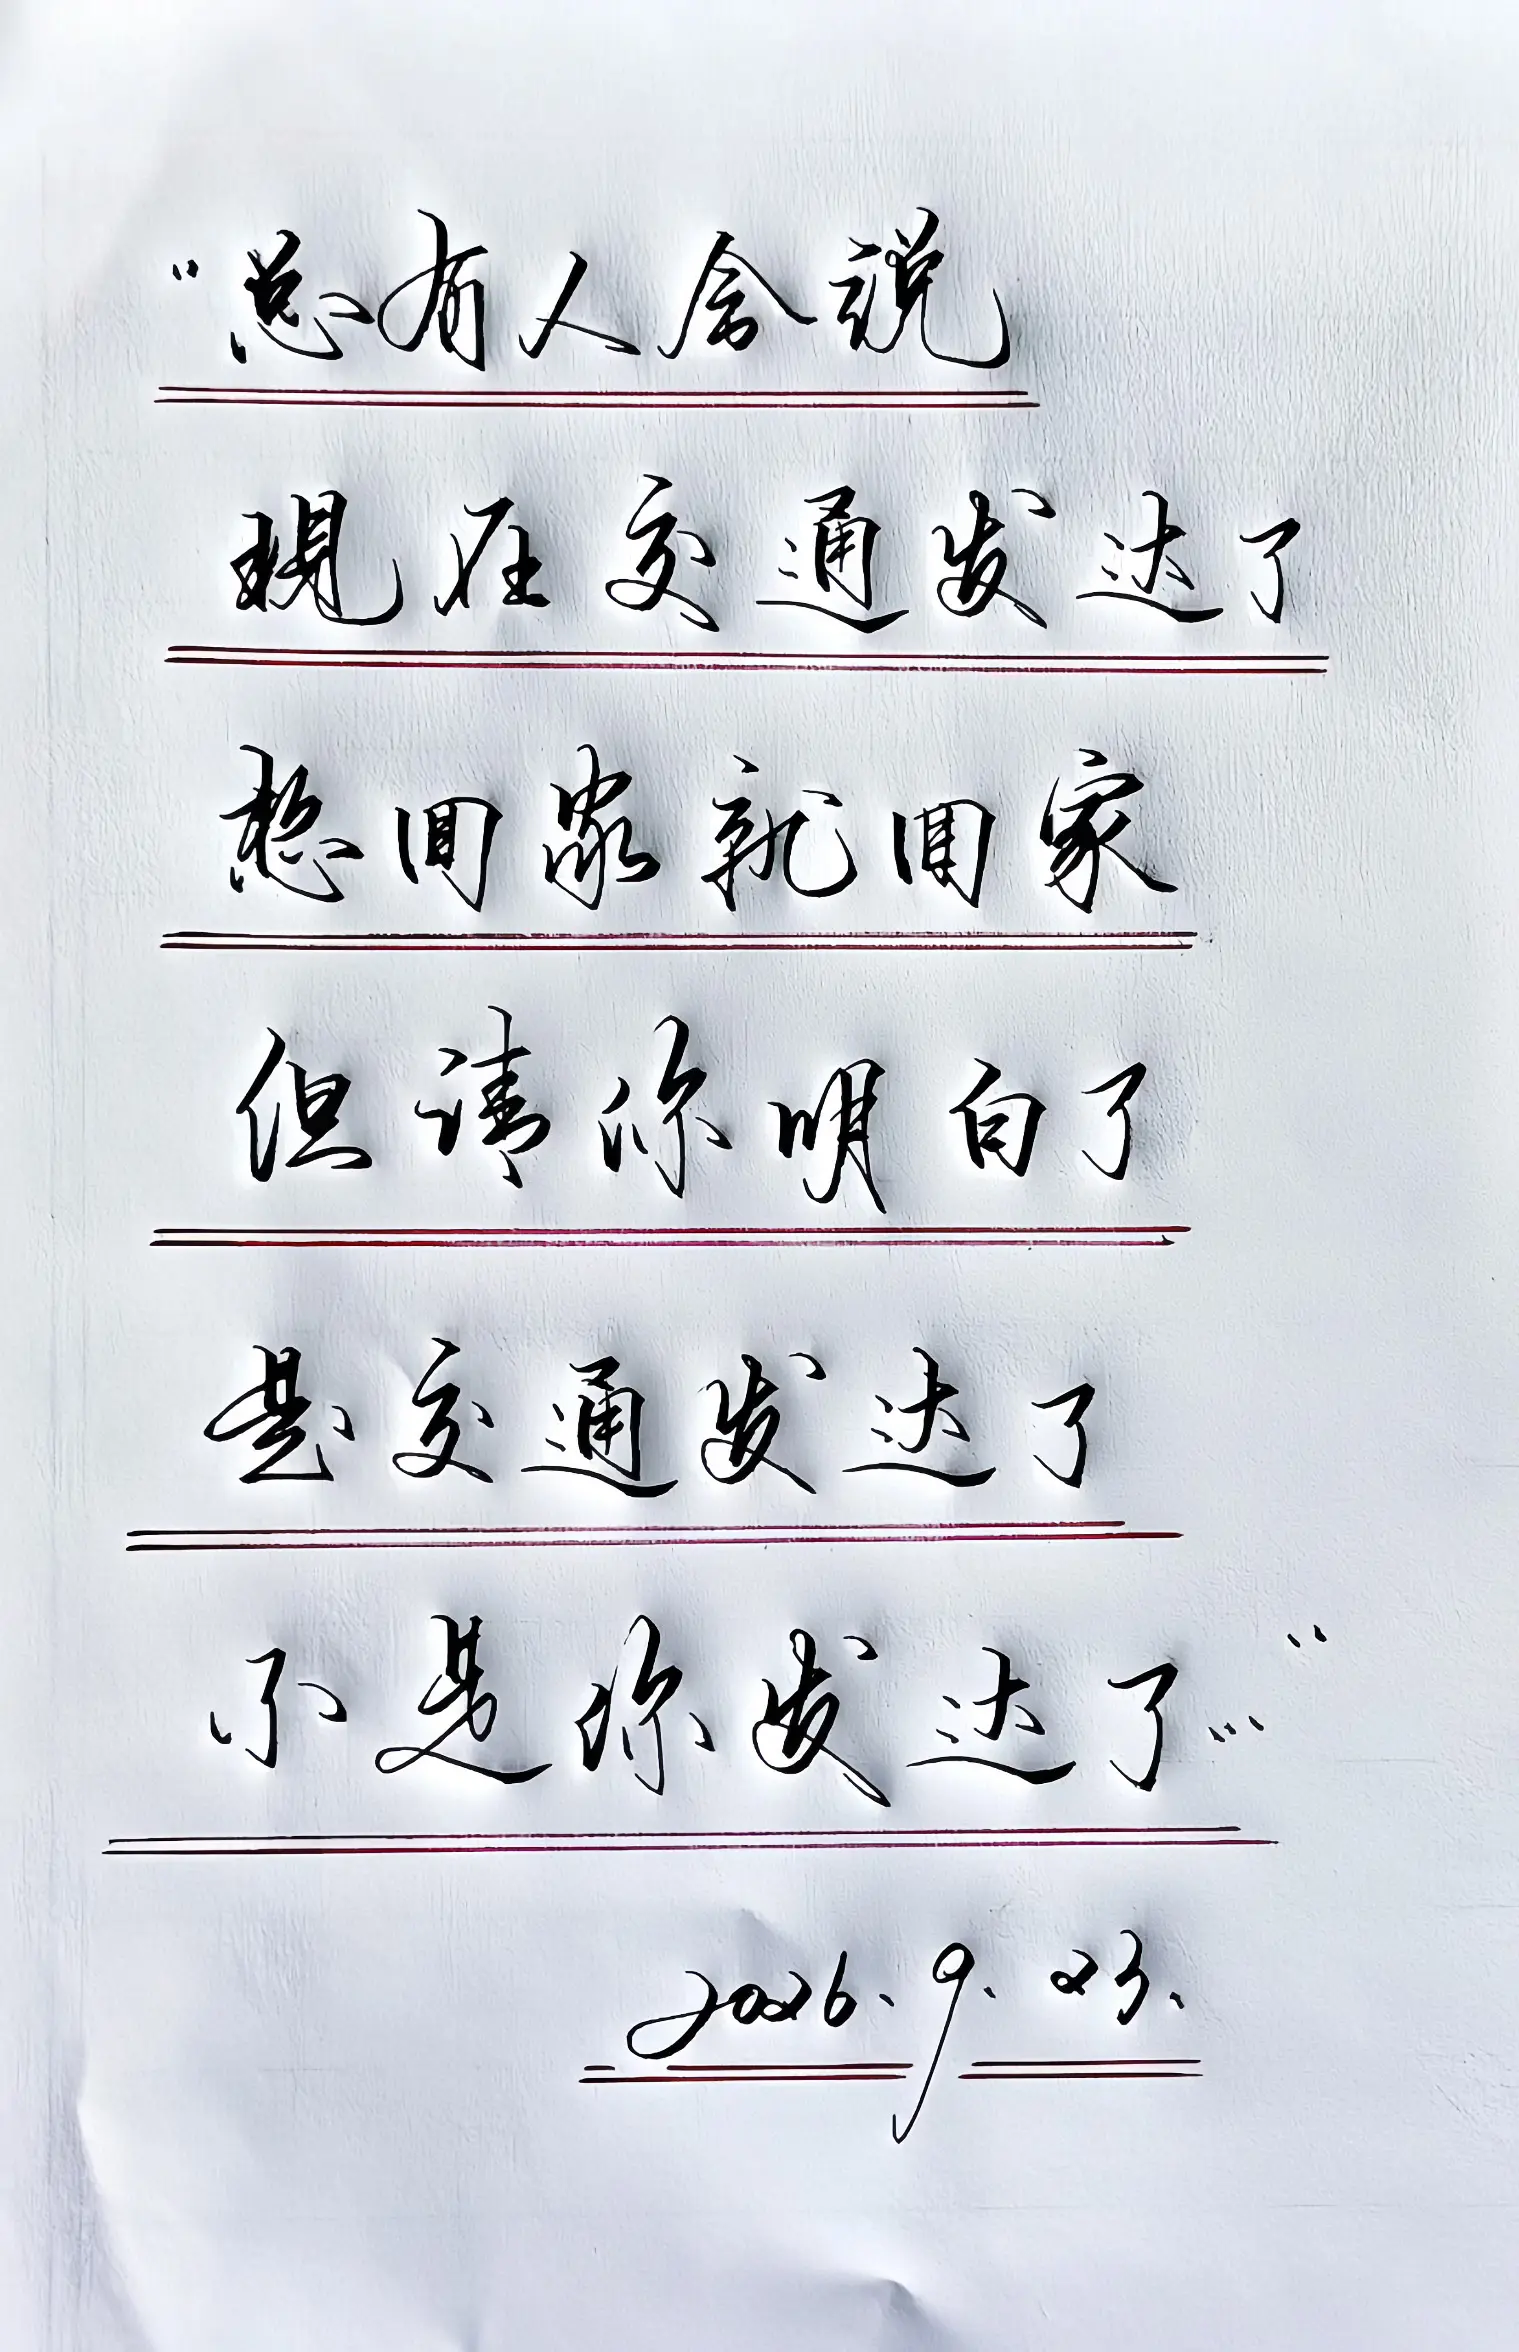 “总有人会说
现在交通发达了
想回家就回家
但请你明白了
是交通发达了
不是你发达了...”
2026.9.23.